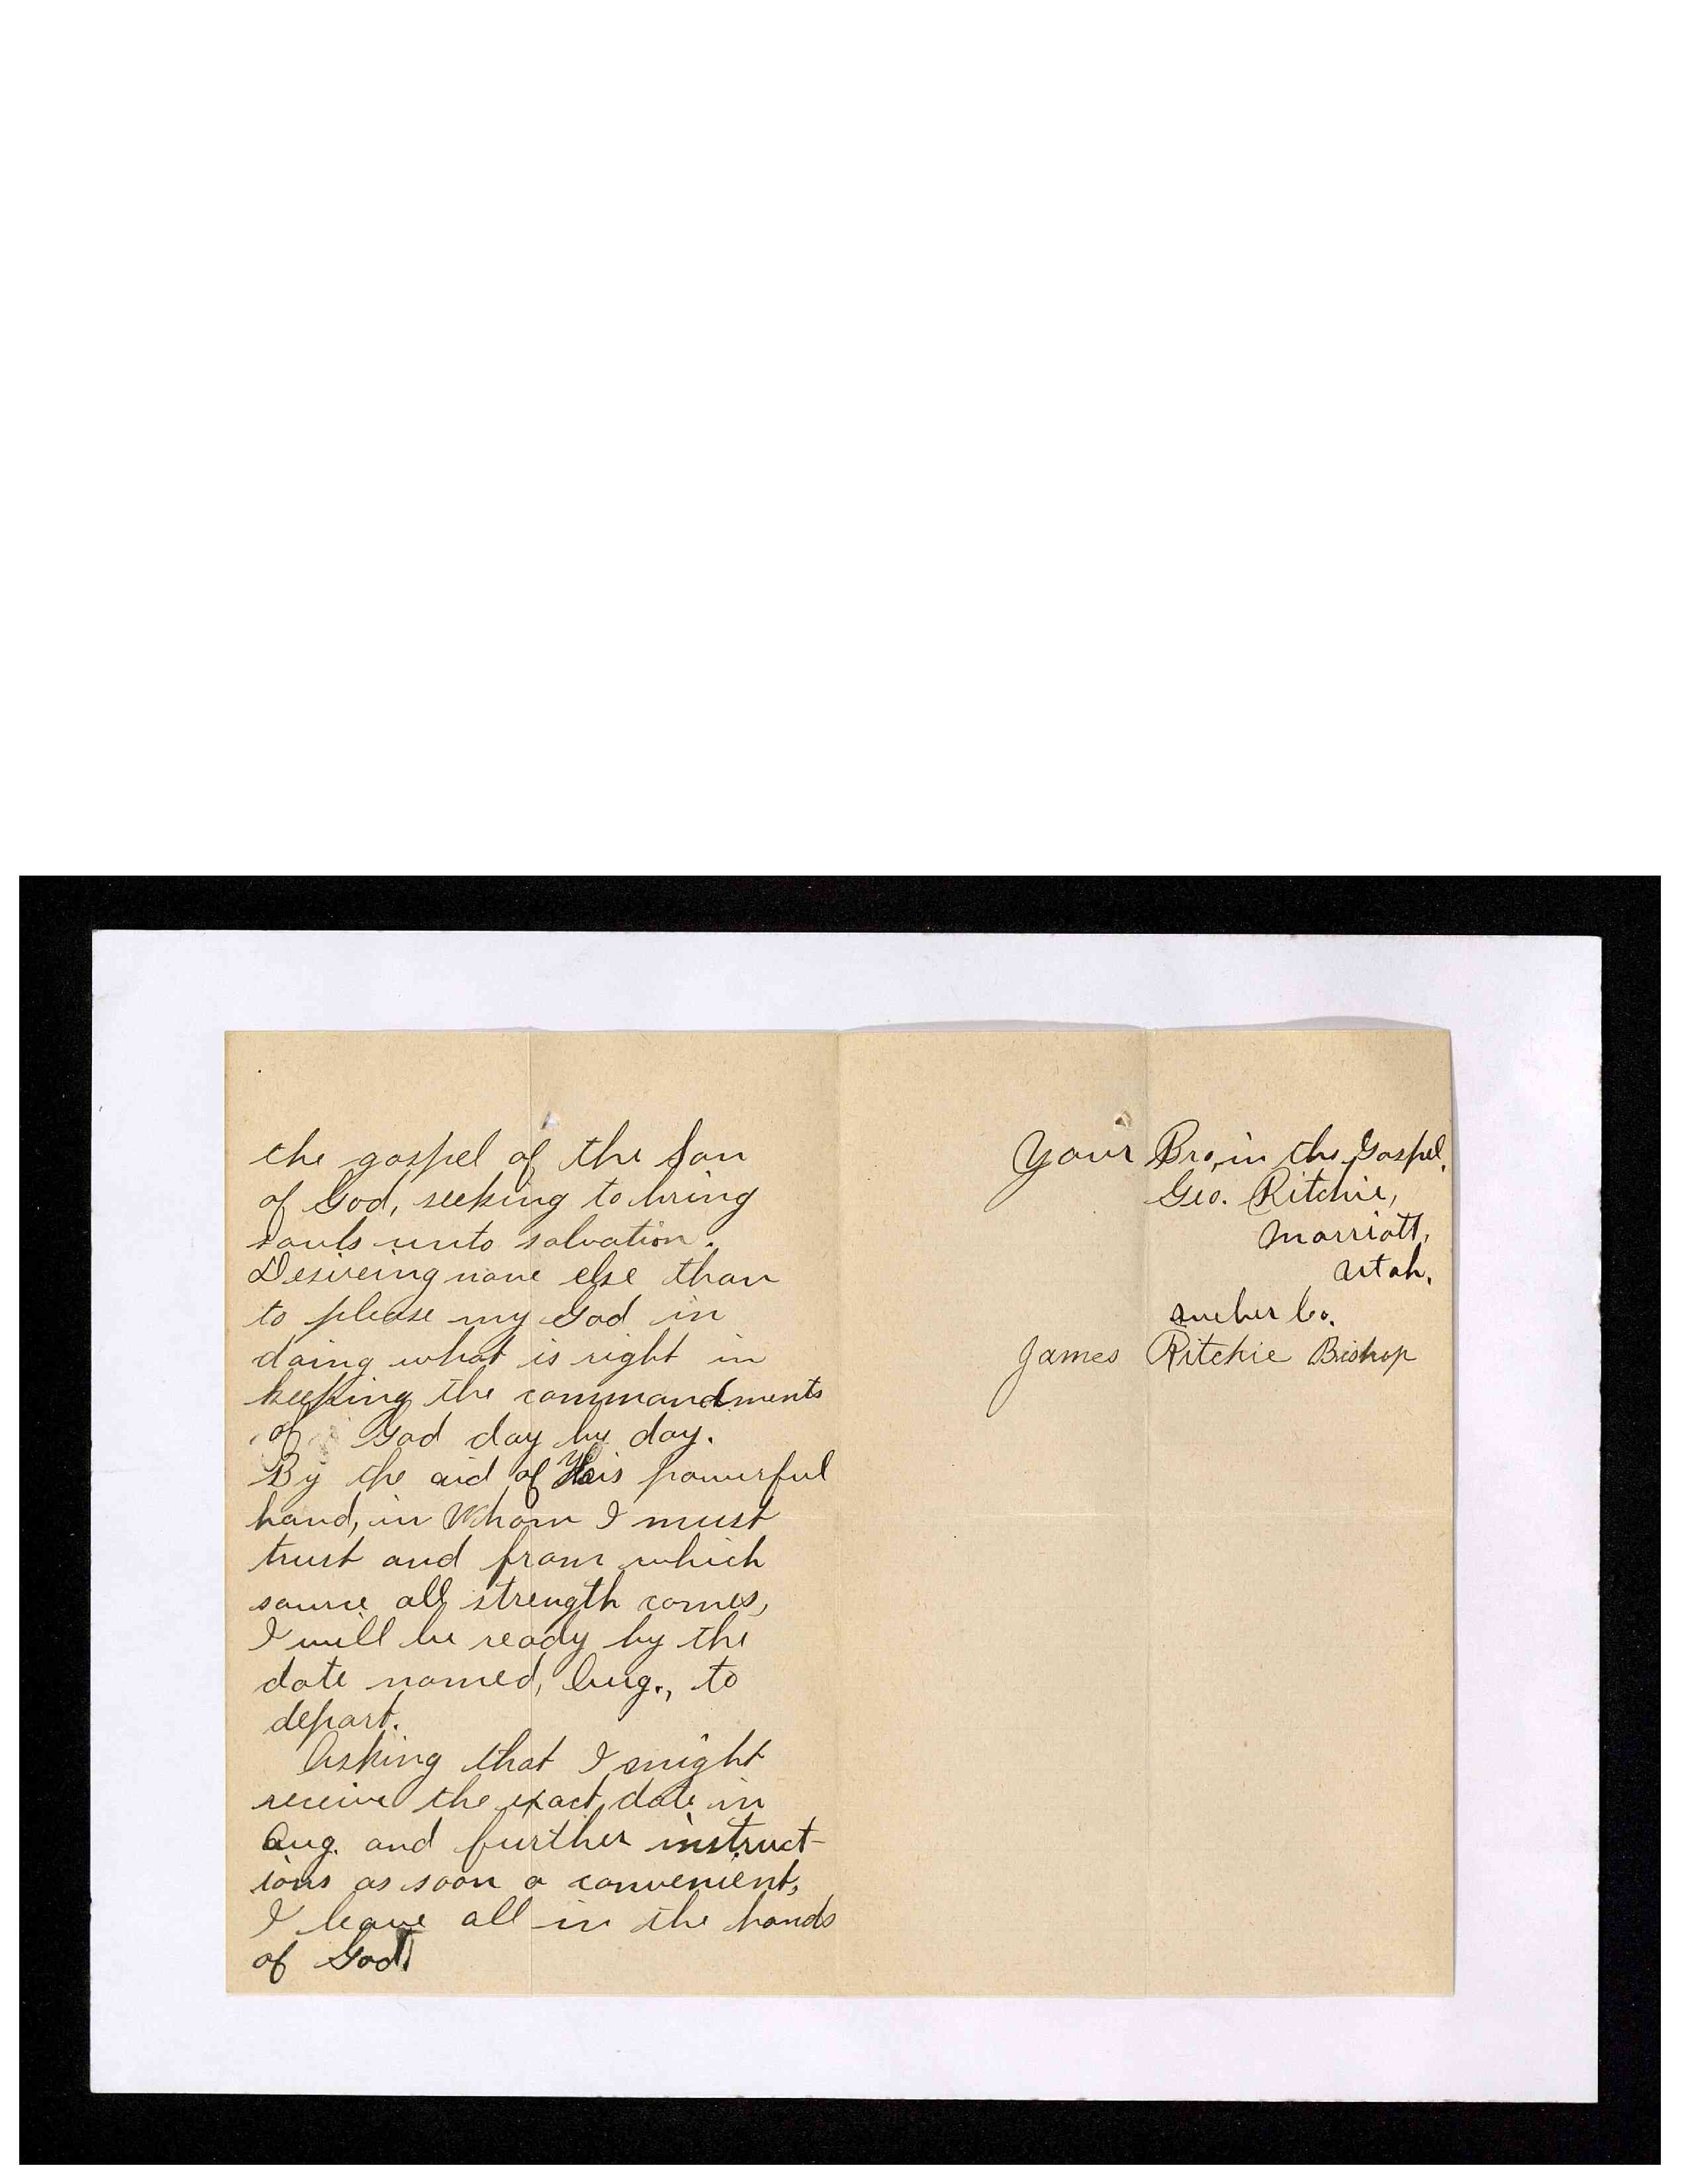 the gospel of the Son
of God, seeking to bring
souls unto salvation.
Desireing none else than
to please my God in
doing what is right in
keeping the commandments
of God day by day.
By the aid of His powerful
hand, in Whom I must
trust and from which
source all strength comes,
I will be ready by the
date named, Aug., to
depart.
Asking that I might
receive the exact date in
Aug. and further instruct-
ions as soon a convenient,
I leave all in the hands
of God.
Your Bro, in the Gospel,
Geo. Ritchie,
Marriott,
Utah.
Weber Co.
James Ritchie Bishop